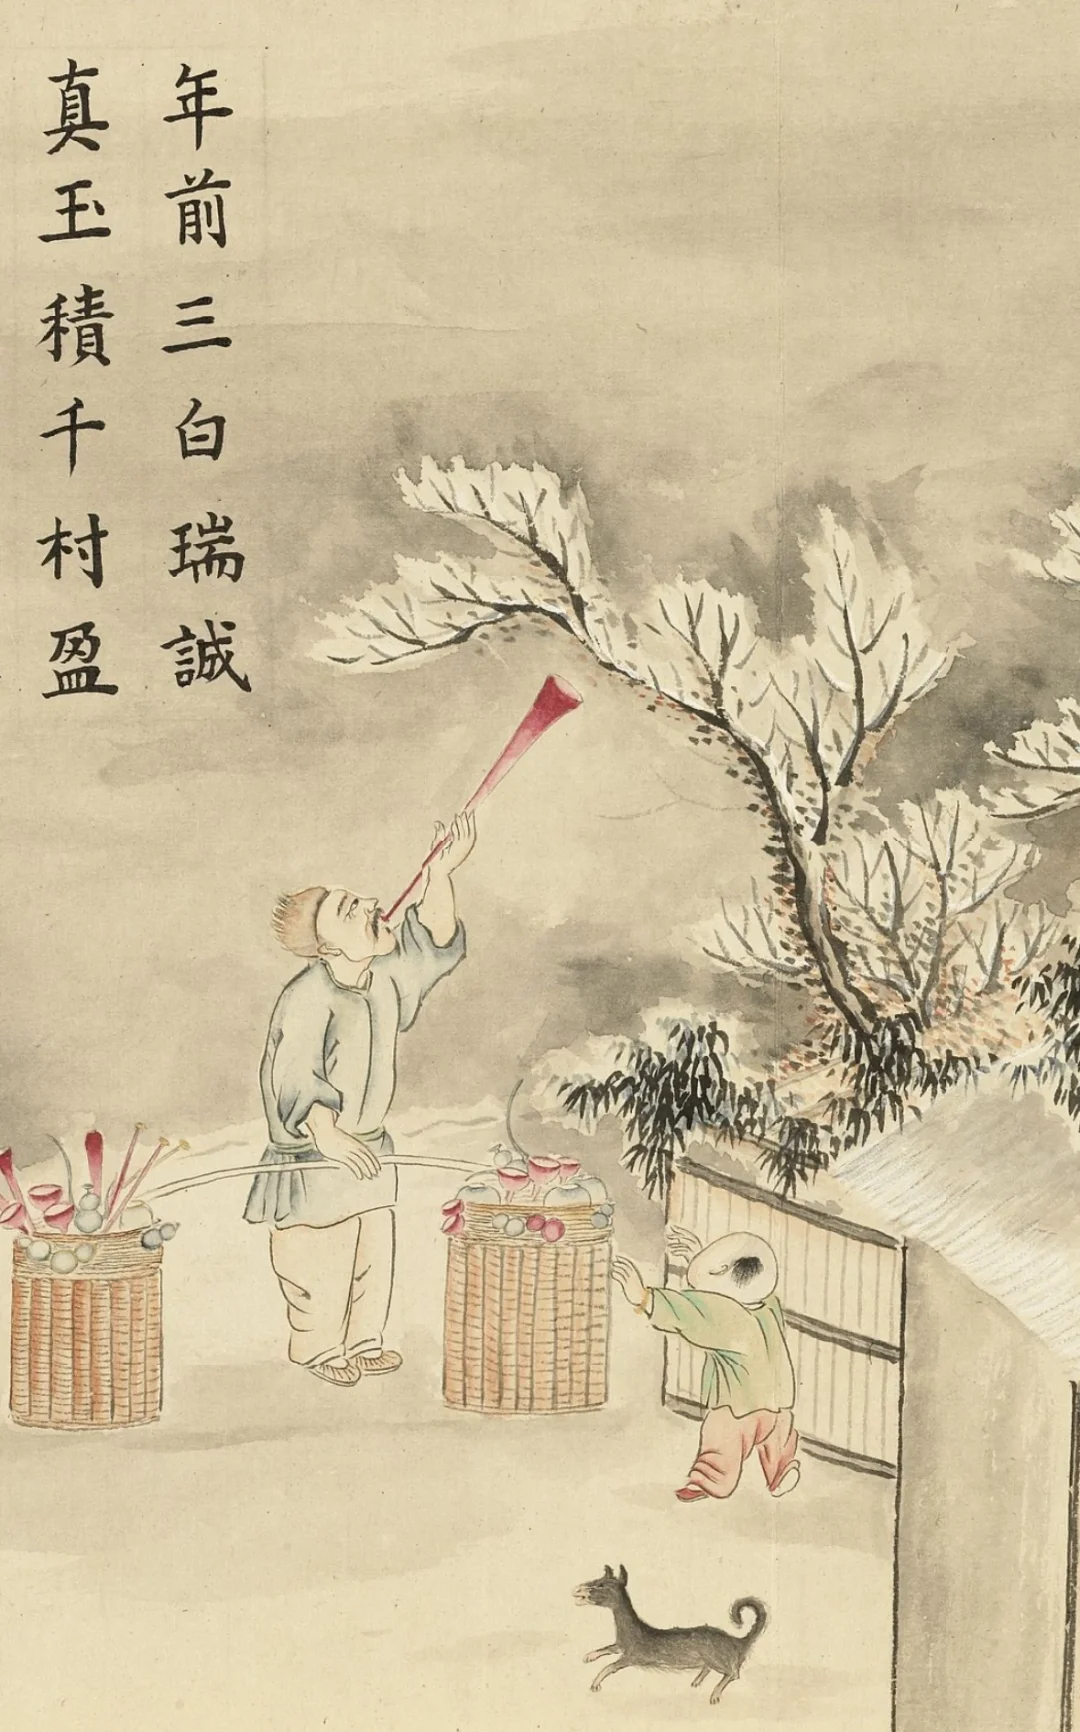 年前三白瑞誠
真玉積千村盈